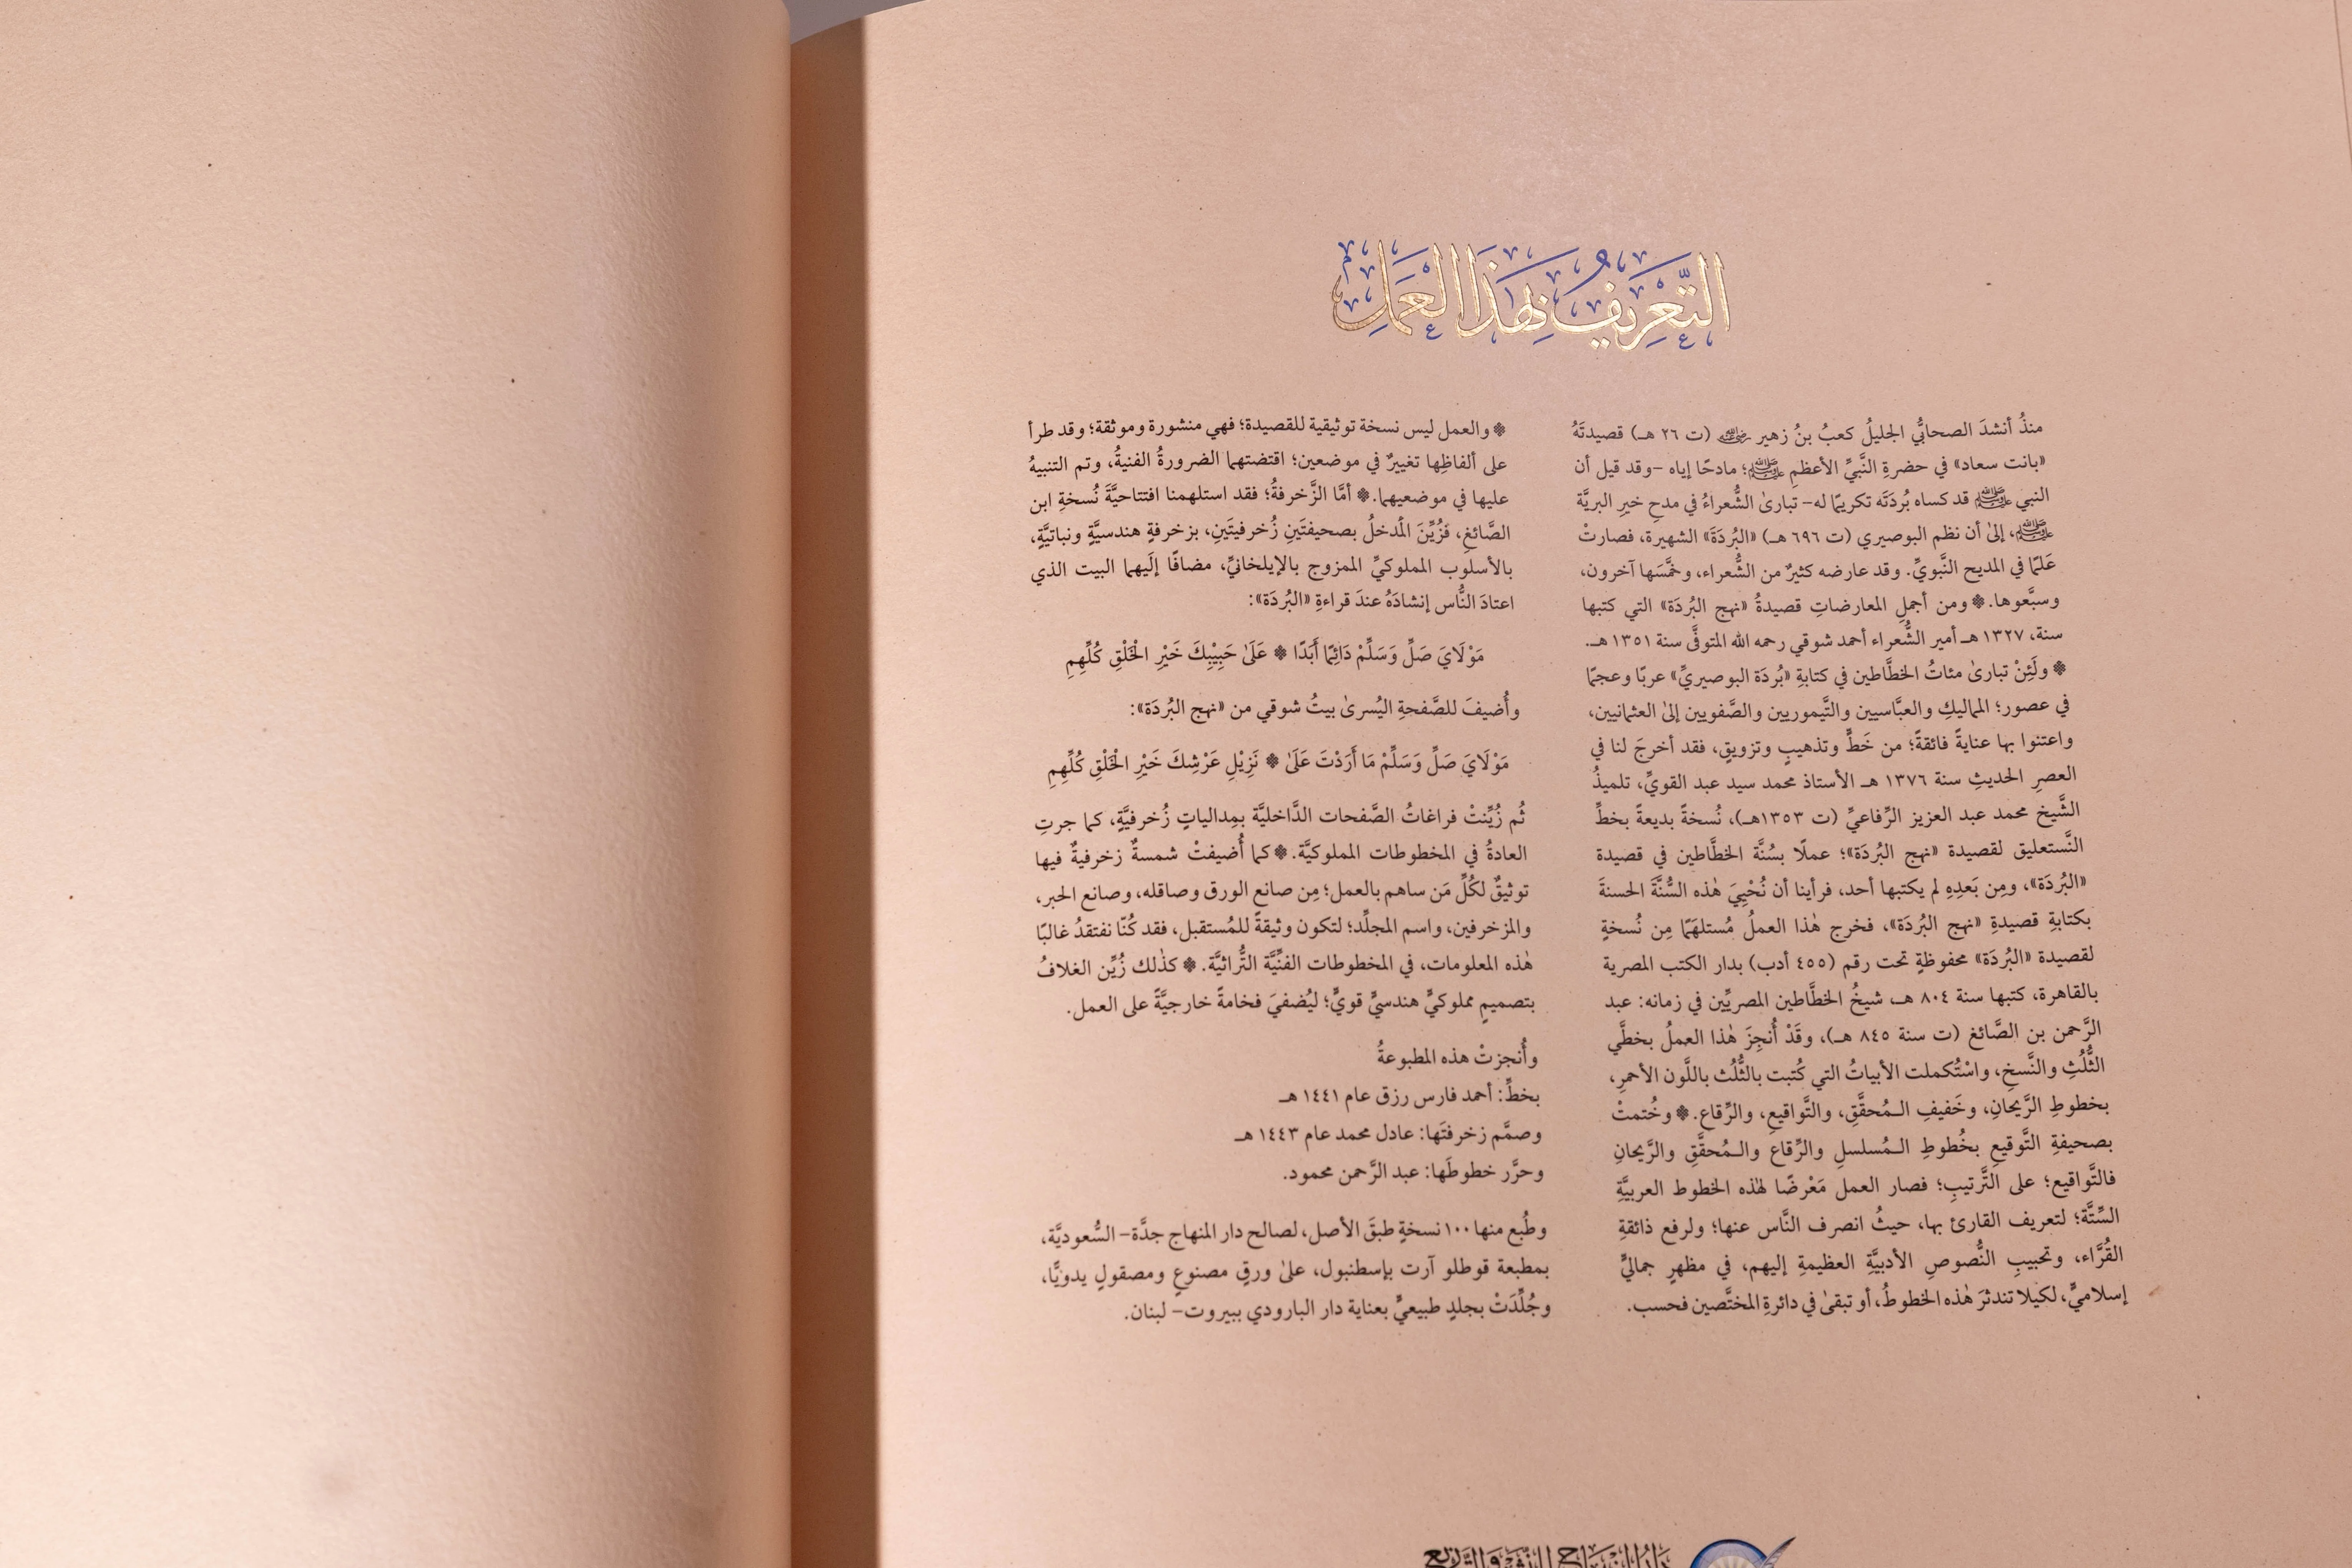 التَّعْرِيفُ بِهَذَا العَمَلِ
منذُ أنشدَ الصحابيُّ الجليلُ كعبُ بنُ زهير رضي الله عنه (ت ٢٦ هـ) قصيدتَهُ
«بانت سعاد» في حضرةِ النَّبيِّ الأعظمِ ﷺ؛ مادحًا إياه -وقد قيل أن
النبي ﷺ قد كساه بُردَتَه تكريمًا له- تبارىٰ الشُّعراءُ في مدحِ خيرِ البريَّة
ﷺ، إلىٰ أن نظم البوصيري (ت ٦٩٦ هـ) «البُردَةَ» الشهيرة، فصارتْ
عَلَمًا في المديح النَّبويِّ. وقد عارضه كثيرٌ من الشُّعراء، وخمَّسَها آخرون،
وسبَّعوها. ❁ ومن أجملِ المعارضاتِ قصيدةُ «نهج البُردَة» التي كتبها
سنة، ١٣٢٧ هـ أمير الشُّعراء أحمد شوقي رحمه الله المتوفَّى سنة ١٣٥١ هـ.
❁ ولَئِنْ تبارىٰ مئاتُ الخطَّاطين في كتابةِ «بُردَة البوصيريِّ» عربًا وعجمًا
في عصور؛ المماليكِ والعبَّاسيين والتَّيموريين والصَّفويين إلىٰ العثمانيين،
واعتنوا بها عنايةً فائقةً؛ من خَطٍّ وتذهيبٍ وتزويقٍ، فقد أخرجَ لنا في
العصرِ الحديثِ سنة ١٣٧٦ هـ الأستاذ محمد سيد عبد القويِّ، تلميذُ
الشَّيخ محمد عبد العزيز الرِّفاعيِّ (ت ١٣٥٣هـ)، نُسخةً بديعةً بخطِّ
النَّستعليق لقصيدة «نهج البُردَة»؛ عملًا بسُنَّة الخطَّاطين في قصيدة
«البُردَة»، ومِن بَعدِهِ لم يكتبها أحد، فرأينا أن نُحْيِيَ هٰذه السُّنَّةَ الحسنةَ
بكتابةِ قصيدةِ «نهج البُردَة»، فخرج هٰذا العملُ مُستلهَمًا مِن نُسخةٍ
لقصيدة «البُردَة» محفوظةٍ تحت رقم (٤٥٥ أدب) بدار الكتب المصرية
بالقاهرة، كتبها سنة ٨٠٤ هـ، شيخُ الخطَّاطين المصريِّين في زمانه: عبد
الرَّحمن بن الصَّائغ (ت سنة ٨٤٥ هـ)، وقَدْ أُنجِزَ هٰذا العملُ بخطَّي
الثُّلُثِ والنَّسخِ، واسْتُكملت الأبياتُ التي كُتبت بالثُّلُث باللَّون الأحمرِ،
بخطوطِ الرَّيحانِ، وخَفيفِ الـمُحقَّقِ، والتَّواقيعِ، والرِّقاع. ❁ وخُتمتْ
بصحيفةِ التَّوقيعِ بخُطوطِ الـمُسلسلِ والرِّقاع والـمُحقَّقِ والرَّيحانِ
فالتَّواقيع؛ على التَّرتيبِ؛ فصار العمل مَعْرضًا لهٰذه الخطوط العربيَّةِ
السِّتَّة؛ لتعريف القارئ بها، حيثُ انصرف النَّاس عنها؛ ولرفع ذائقةِ
القُرَّاء، وتحبيبِ النُّصوصِ الأدبيَّةِ العظيمةِ إليهم، في مظهرٍ جماليٍّ
إسلاميٍّ، لكيلا تندثرَ هٰذه الخطوطُ، أو تبقىٰ في دائرةِ المختصِّين فحسب.
❁ والعمل ليس نسخة توثيقية للقصيدة؛ فهي منشورة وموثقة؛ وقد طرأ
على ألفاظِها تغييرٌ في موضعين؛ اقتضتهما الضرورةُ الفنيةُ، وتم التنبيهُ
عليها في موضعيهما. ❁ أمَّا الزَّخرفةُ؛ فقد استلهمنا افتتاحيَّةَ نُسخةِ ابن
الصَّائغِ، فَزُيِّنَ المَدخلُ بصحيفتَينِ زُخرفيتَينِ، بزخرفةٍ هندسيَّةٍ ونباتيَّةٍ،
بالأسلوب المملوكيِّ الممزوج بالإيلخانيِّ، مضافًا إلَيهما البيت الذي
اعتادَ النَّاس إنشادَهُ عندَ قراءةِ «البُردَة»:
مَوْلَايَ صَلِّ وَسَلِّمْ دَائِمًا أَبَدًا ❁ عَلَىٰ حَبِيْبِكَ خَيْرِ الْخَلْقِ كُلِّهِمِ
وأُضيفَ للصَّفحةِ اليُسرىٰ بيتُ شوقي من «نهج البُردَة»:
مَوْلَايَ صَلِّ وَسَلِّمْ مَا أَرَدْتَ عَلَىٰ ❁ نَزِيْلِ عَرْشِكَ خَيْرِ الْخَلْقِ كُلِّهِمِ
ثُم زُيِّنتْ فراغاتُ الصَّفحات الدَّاخليَّة بمِدالياتٍ زُخرفيَّةٍ، كما جرتِ
العادةُ في المخطوطات المملوكيَّة. ❁ كما أُضيفتْ شمسةٌ زخرفيةٌ فيها
توثيقٌ لكُلِّ مَن ساهم بالعمل؛ مِن صانع الورق وصاقله، وصانع الحبر،
والمزخرفين، واسم المجلِّد؛ لتكون وثيقةً للمُستقبل، فقد كُنّا نفتقدُ غالبًا
هٰذه المعلومات، في المخطوطات الفنِّيَّة التُّراثيَّة. ❁ كذٰلك زُيِّن الغلافُ
بتصميمٍ مملوكيٍّ هندسيٍّ قويٍّ؛ ليُضفيَ فخامةً خارجيَّةً على العمل.
وأُنجزتْ هذه المطبوعةُ
بخطِّ: أحمد فارس رزق عام ١٤٤١ هـ
وصمَّم زخرفتَها: عادل محمد عام ١٤٤٣ هـ
وحرَّر خطوطَها: عبد الرَّحمن محمود.
وطُبع منها ١٠٠ نسخةٍ طبقَ الأصل، لصالح دار المنهاج جدَّة- السُّعوديَّة،
بمطبعة قوطلو آرت بإسطنبول، علىٰ ورقٍ مصنوعٍ ومصقولٍ يدويًّا،
وجُلِّدَتْ بجلدٍ طبيعيٍّ بعناية دار البارودي ببيروت- لبنان.
دَارُ الْمِنْهَاجِ لِلنَّشْرِ وَالتَّوْزِيعِ